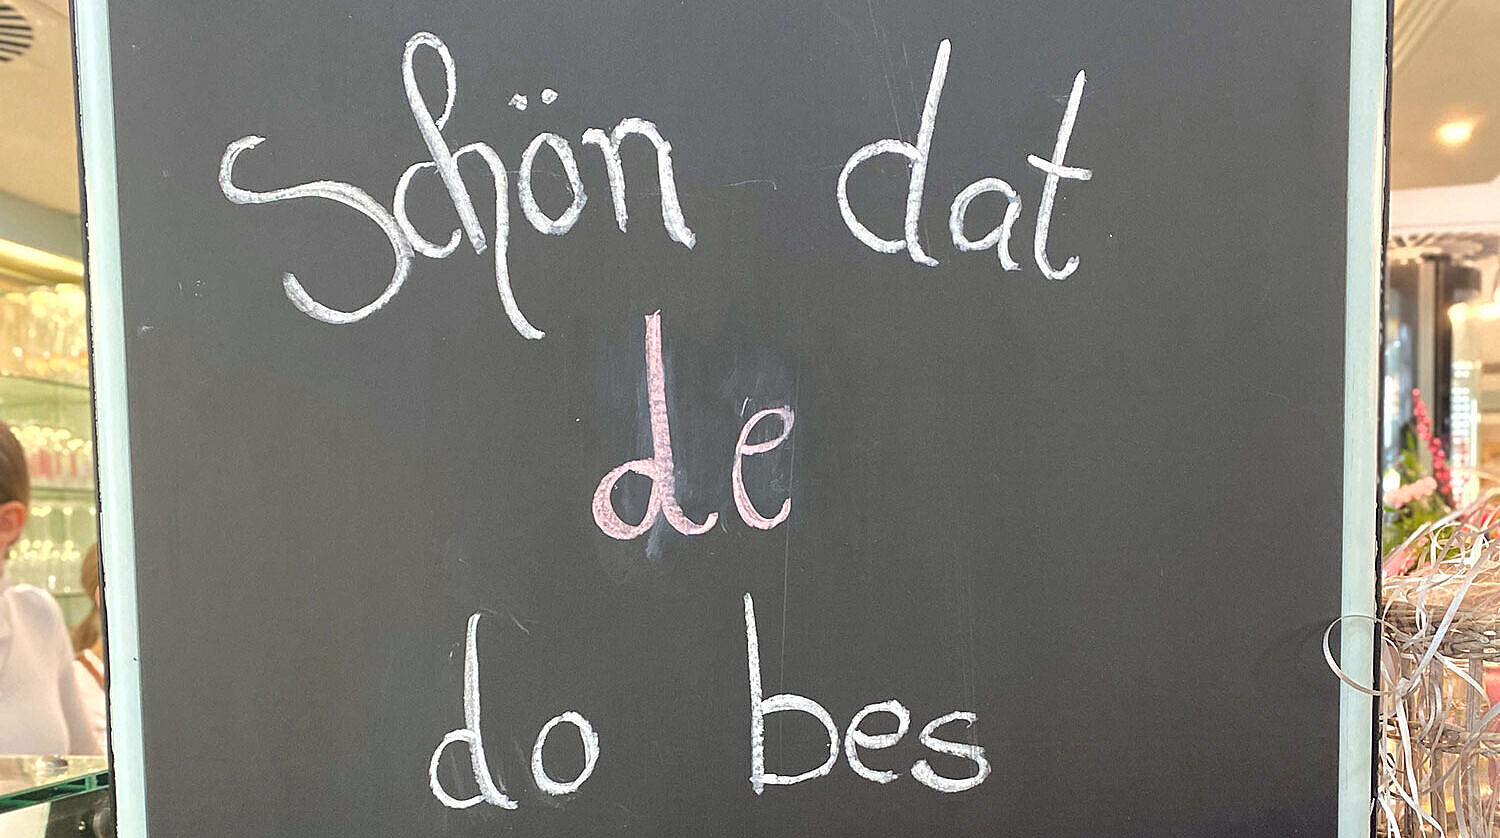 Schön dat
de
do bes